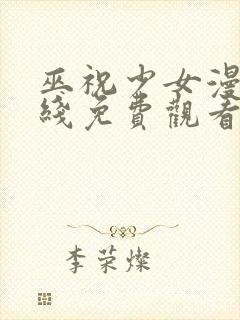 巫祝少女漫
綫免費觀看
李荣燦